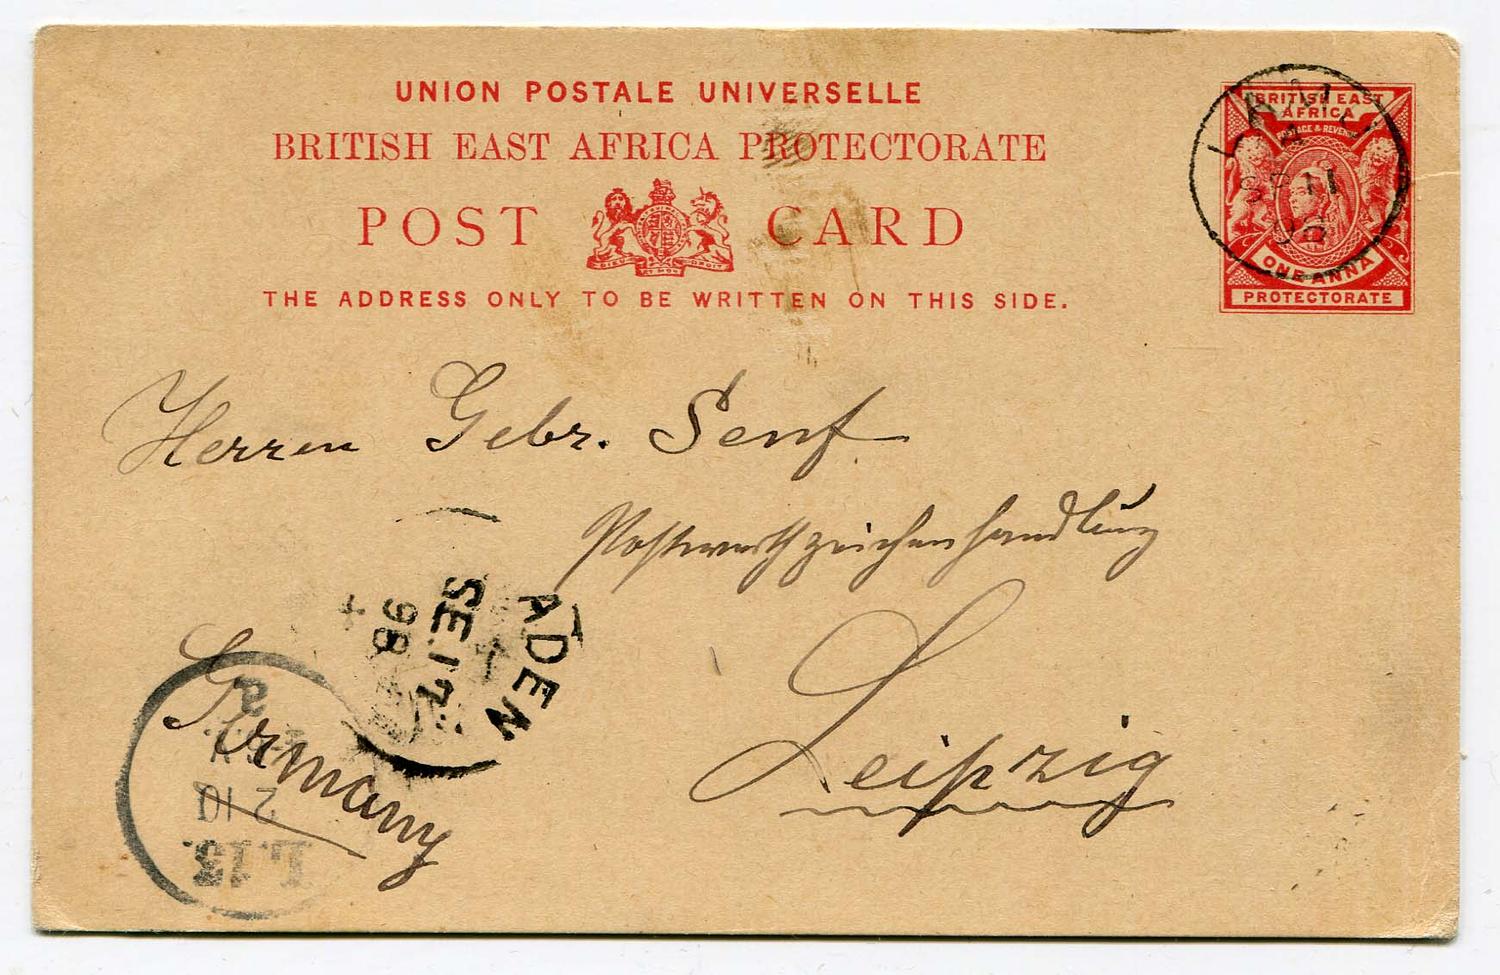 UNION POSTALE UNIVERSELLE
BRITISH EAST AFRICA PROTECTORATE
POST CARD
DIEU ET MON DROIT
THE ADDRESS ONLY TO BE WRITTEN ON THIS SIDE.
BRITISH EAST
AFRICA
POSTAGE & REVENUE
ONE ANNA
PROTECTORATE
LAMU
SP 11
98
Herren Gebr. Senf
Postwerthzeichenhandlung
Leipzig
Germany
ADEN
SE.17
98
2 10